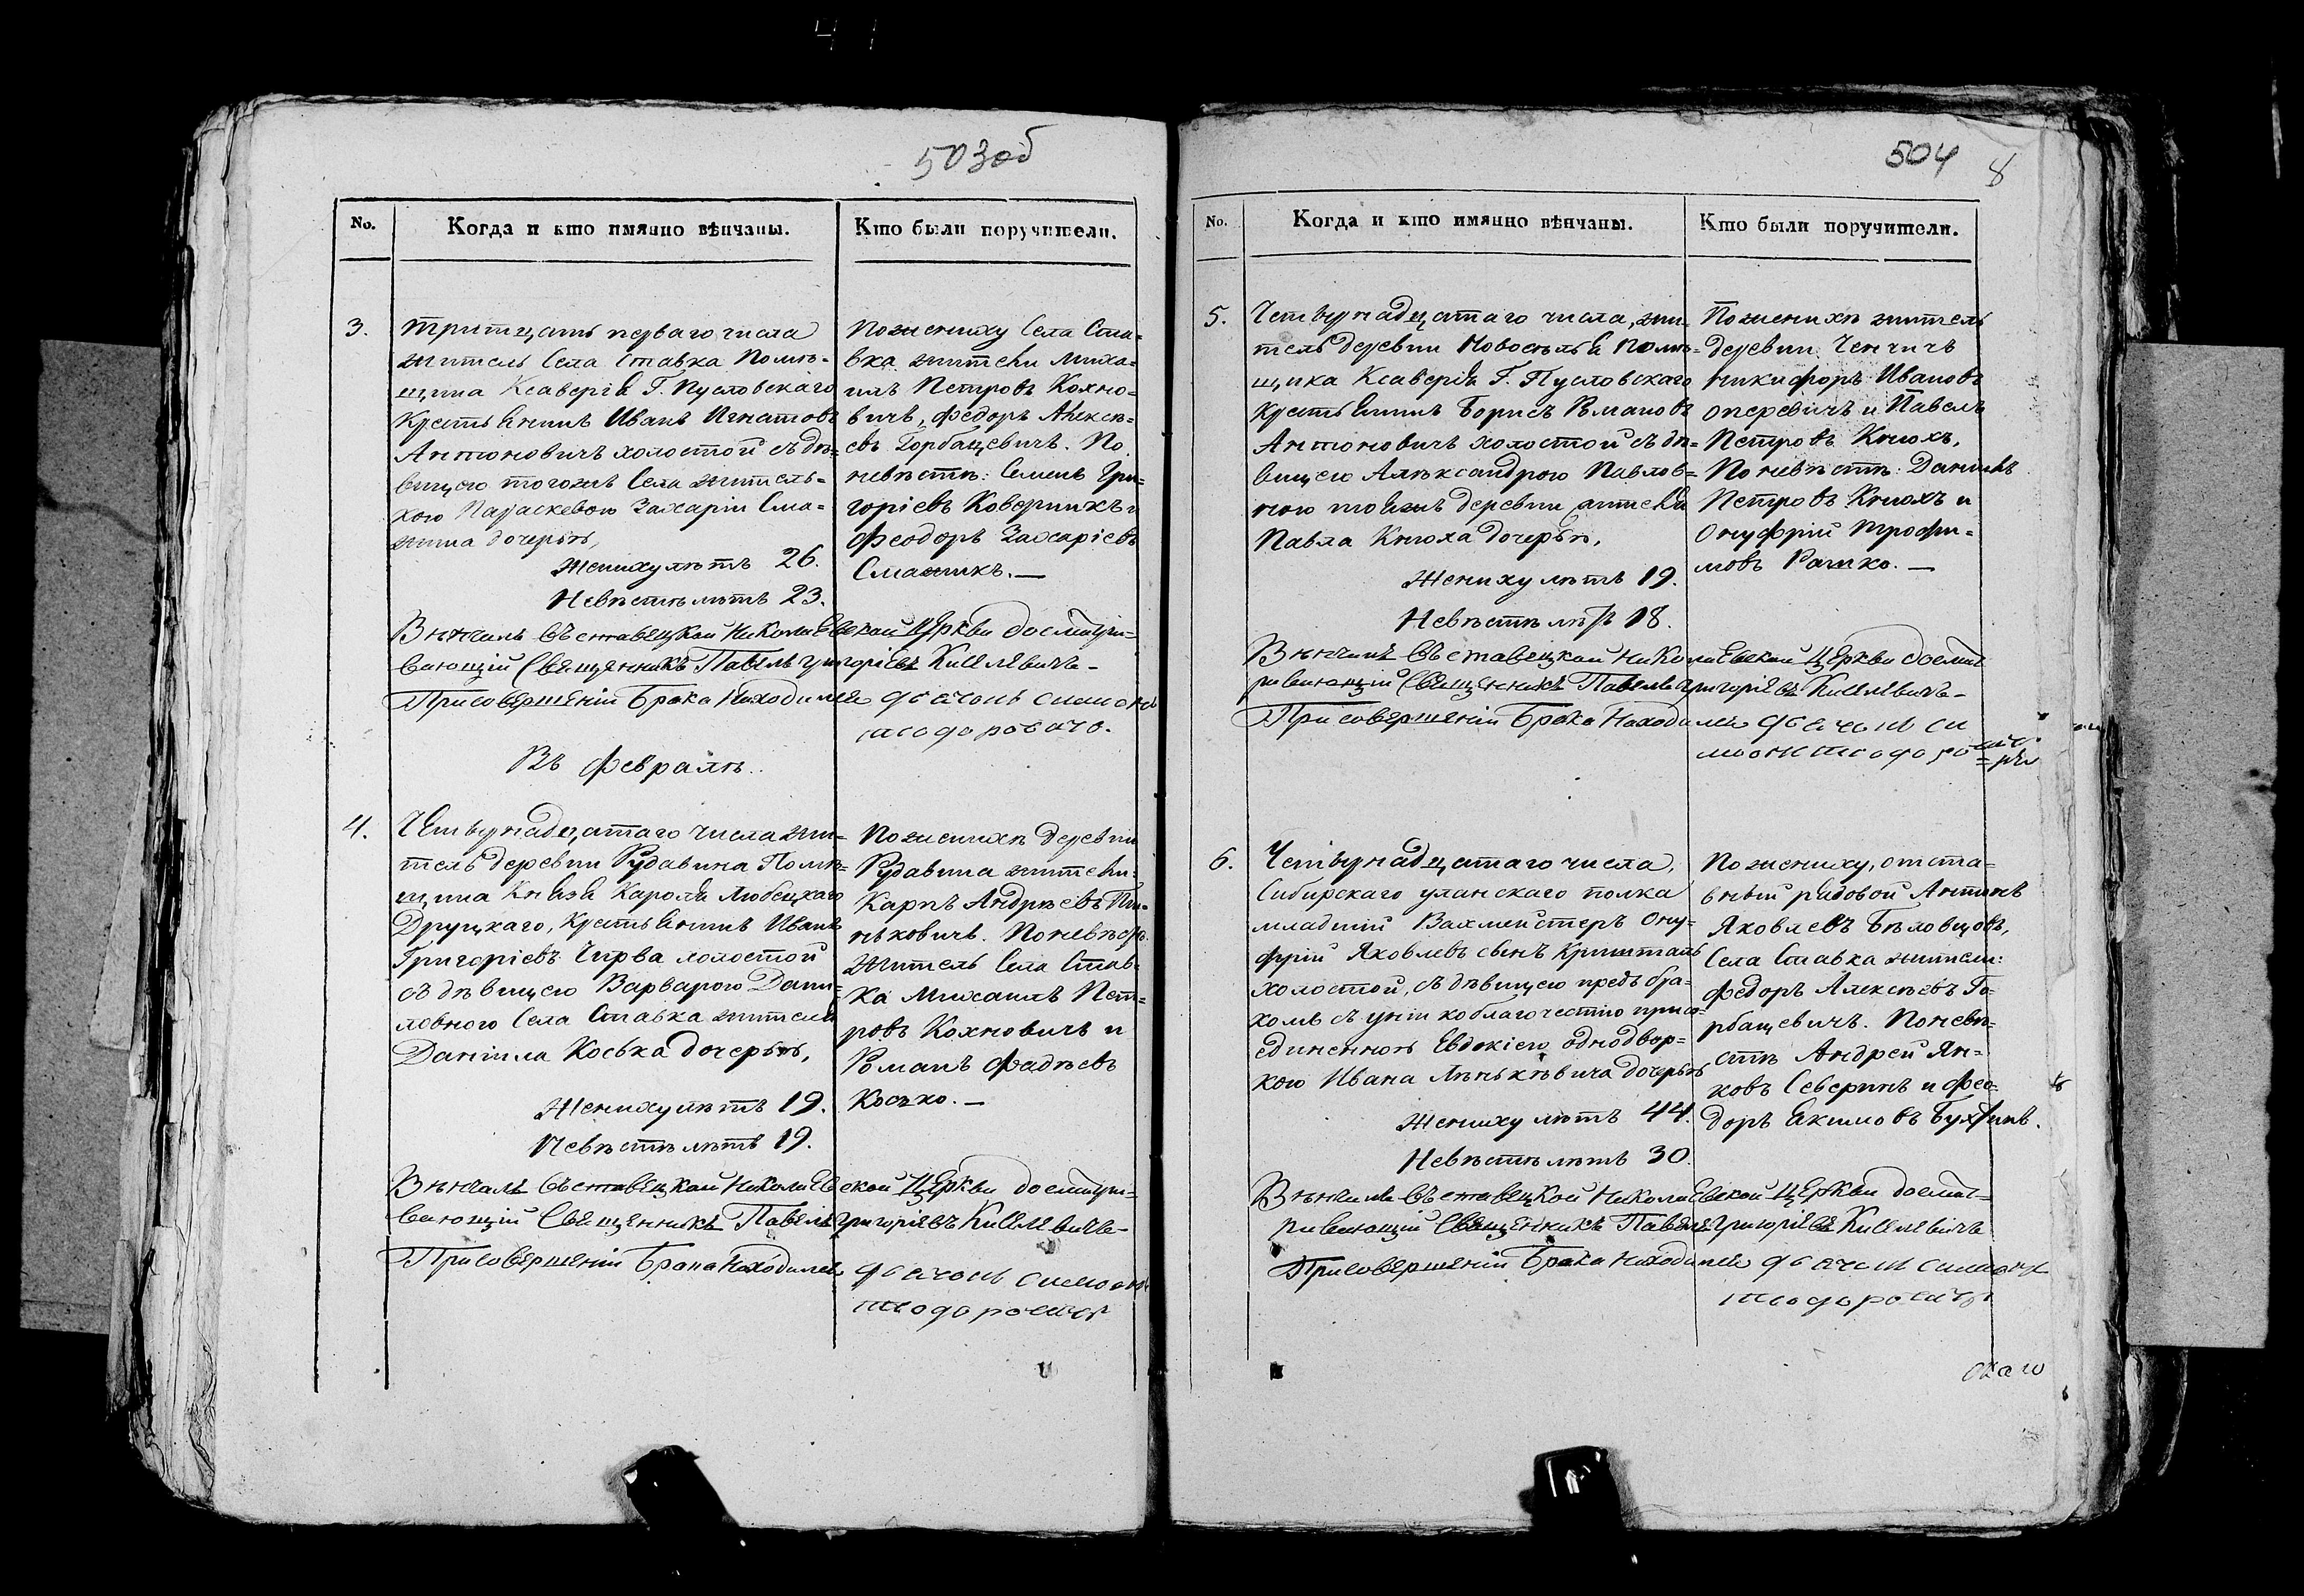 503об
No.
Когда и кто имянно вѣнчаны.
Кто были поручители.
3.
Тритцать перваго числа
житель Села Ставка Помѣ-
щика Ксаверія Г. Пусловскаго
Крестьянинъ Иванъ Игнатовъ
Антоновичъ холостой съ дѣ-
вицею тогожъ Села житель-
кою Параскевою Захаріи Сма-
жика дочерью,
Жениху лѣтъ 26.
Невѣстѣ лѣтъ 23.
Пожениху Села Ста-
вка жители Миха-
илъ Петровъ Кохно-
вичъ, Федоръ Алексѣ-
евъ Горбацевичъ. По
невѣстѣ: Семенъ Гри-
горіевъ Коверникъ и
Феодоръ Захаріевъ
Смажикъ.—
Вѣнчалъ въ ставецкой Николаевской Церкви досматри-
вающій Священникъ Павелъ Григоріевъ
При совершеніи Брака Находился
Въ Февралѣ.
4.
Четвырнадцатаго числа жи-
тель деревни Рудавина Помѣ-
щика Князя Кароля Любецкаго
Друцкаго, Крестьянинъ Иванъ
Григоріевъ Чирва холостой
съ дѣвицею Варварою Дани-
ловною Села Ставка жителя
Даніила Коська дочерью,
Жениху лѣтъ 19.
Невѣстѣ лѣтъ 19.
Поженихѣ деревни
Рудавина жители:
Карпъ Андрѣевъ
Поневѣстѣ
житель Села Став-
ка Михаилъ Пет-
ровъ Кохновичъ и
Романъ Фадѣевъ
Косько.—
Вѣнчалъ въ ставецкой Николаевской Церкви досматри-
вающій Священникъ Павелъ Григоріевъ
При совершеніи Брака Находился
504
8
No.
Когда и кто имянно вѣнчаны.
Кто были поручители.
5.
Четвырнадцатаго числа, жи-
тель деревни Новоселья Помѣ-
щика Ксаверія Г. Пусловскаго
Крестьянинъ Борисъ Романовъ
Антоновичъ холостой съ дѣ-
вицею Александрою Павлов-
ною тояжъ деревни жителя
Павла Кнюха дочерью,
Жениху лѣтъ 19.
Невѣстѣ лѣтъ 18.
Поженихѣ житель
деревни Ченчичъ
Никифоръ Ивановъ
и Павелъ
Петровъ Кнюхъ,
Поневѣстѣ: Данилъ
Петровъ Кнюхъ и
Онуфрій Трофи-
мовъ Рашко.—
Вѣнчалъ въ ставецкой Николаевской Церкви досмат
ривающій Священникъ Павелъ Григоріевъ
При совершеніи Брака Находился
6.
Четвырнадцатаго числа,
Сибирскаго уланскаго полка
младшій Вахмейстеръ Ону-
фрій Яковлевъ сынъ Кришталь
холостой, съ дѣвицею предъ бра-
комъ съ уніи ко благочестію присо-
единенною Евдокіею однодвор-
кою Ивана Лѣнькѣвича дочерью
Жениху лѣтъ 44.
Невѣстѣ лѣтъ 30.
Пожениху, отста-
вный рядовой Антонъ
Яковлевъ Бѣловцовъ,
Села Ставка жители:
Федоръ Алексѣевъ Го-
рбацевичъ. Поневѣ-
стѣ Андрей Ян-
ковъ Северинъ и Фео-
доръ Екимовъ
Вѣнчалъ въ ставецкой Николаевской Церкви досмат-
ривающій Священникъ Павелъ Григоріевъ
При совершеніи Брака Находился